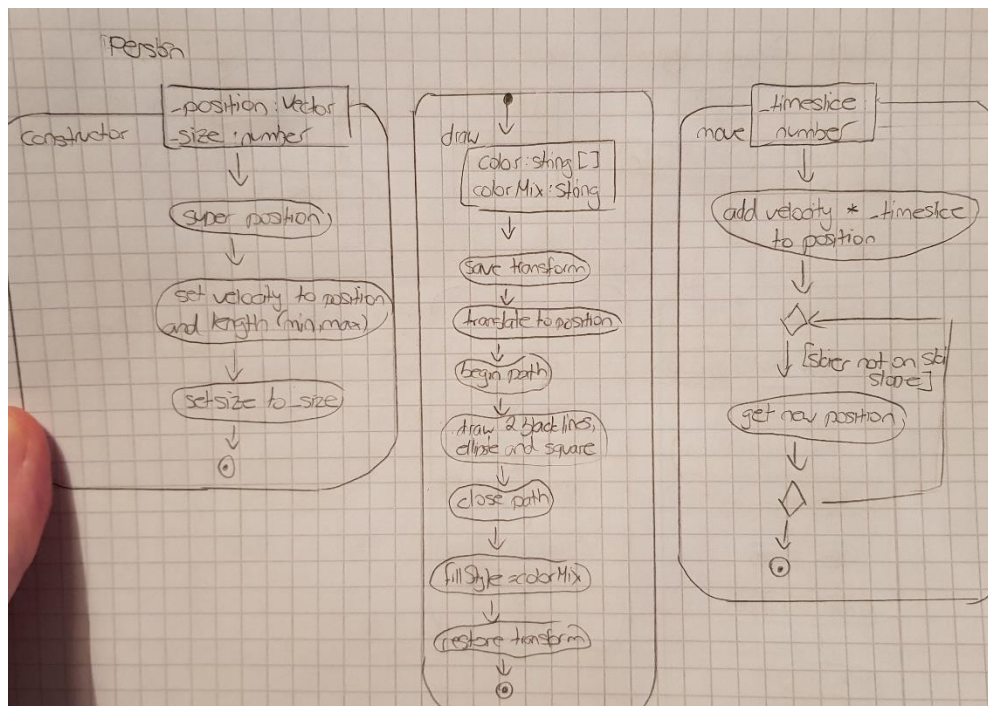 Person
constructor
_position : Vector
_size : number
super position
set velocity to position
and length (min, max)
set size to _size
draw
color : string []
colorMix : string
save transform
translate to position
begin path
draw 2 black lines,
ellipse and square
close path
fillStyle = colorMix
restore transform
move
_timeslice
number
add velocity * _timeslice
to position
[skier not on ski
slope]
get new position